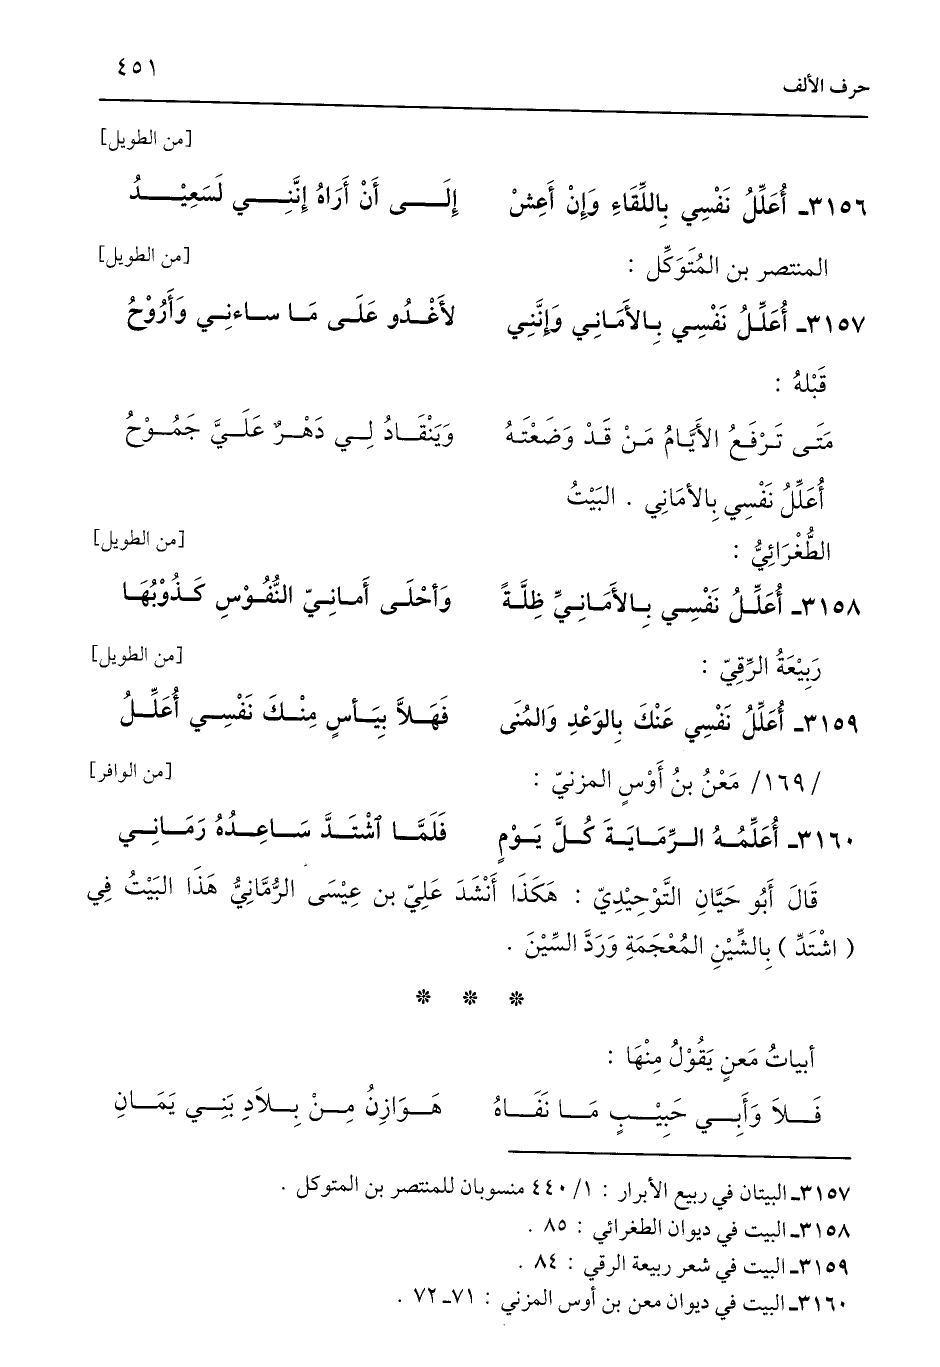 ٤٥١
حرف الألف
[من الطويل]
٣١٥٦ـ أُعَلِّلُ نَفْسِي بِاللِّقَاءِ وَإِنْ أَعِشْ إِلَى أَنْ أَرَاهُ إِنَّنِي لَسَعِيْدُ
[من الطويل]
المنتصر بن المُتَوَكِّل :
٣١٥٧ـ أُعَلِّلُ نَفْسِي بِالأَمَانِي وَإِنَّنِي لأَغْدُو عَلَى مَا ساءنِي وَأَرُوْحُ
قَبْلهُ :
مَتَى تَرْفَعُ الأَيَّامُ مَنْ قَدْ وَضَعْتَهُ وَيَنْقَادُ لِي دَهْرٌ عَلَيَّ جَمُوْحُ
أُعَلِّلُ نَفْسِي بِالأمَانِي . البَيْتُ
[من الطويل]
الطُّغْرَائِيُّ :
٣١٥٨ـ أُعَلِّلُ نَفْسِي بِالأَمَانِيِّ ظِلَّةً وَأَحْلَى أَمانِيّ النُّفُوْسِ كَذُوْبُهَا
[من الطويل]
رَبِيْعَةُ الرِّقِيّ :
٣١٥٩ـ أُعَلِّلُ نَفْسِي عَنْكَ بِالوَعْدِ وَالمُنَى فَهَلاَّ بِيَأسٍ مِنْكَ نَفْسِي أُعَلِّلُ
[من الوافر]
/١٦٩/ مَعْنُ بنُ أَوْسٍ المزنيّ :
٣١٦٠ـ أُعَلِّمُهُ الرِّمَايَةَ كُلَّ يَوْمٍ فَلَمَّا اشْتَدَّ سَاعِدُهُ رَمَانِي
قَالَ أَبُو حَيَّانِ التَّوْحِيْدِيّ : هَكَذَا أَنْشَدَ عَلِيّ بن عِيْسَى الرُّمَّانِيُّ هَذَا البَيْتُ فِي
( اشْتَدِّ ) بِالشِّيْنِ المُعْجَمَةِ وَرَدَّ السِّيْنَ .
* * *
أبياتُ مَعنٍ يَقُوْلُ مِنْهَا :
فَلاَ وَأَبِي حَبِيْبٍ مَا نَفَاهُ هَوَازِنُ مِنْ بِلاَدِ بَنِي يَمَانِ
٣١٥٧ـ البيتان في ربيع الأبرار : ١/ ٤٤٠ منسوبان للمنتصر بن المتوكل .
٣١٥٨ـ البيت في ديوان الطغرائي : ٨٥ .
٣١٥٩ـ البيت في شعر ربيعة الرقي : ٨٤ .
٣١٦٠ـ البيت في ديوان معن بن أوس المزني : ٧١ـ ٧٢ .